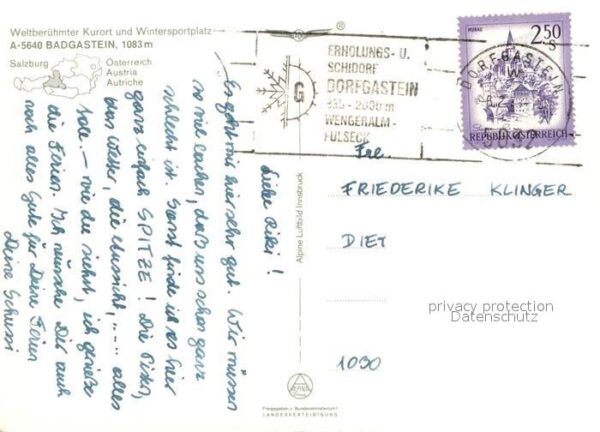 Weltberühmter Kurort und Wintersportplatz
A-5640 BADGASTEIN, 1083 m
Salzburg
Österreich
Austria
Autriche
Liebe Riki!
Es geht mir hier sehr gut. Wir müssen
so viel lachen, daß uns schon ganz
schlecht ist. Sonst finde ich es hier
ganz einfach SPITZE! Die Pisten,
das Wetter, die Aussicht, .... alles
tolle. – wie du siehst, ich genieße
die Ferien. Ich wünsche Dir auch
noch alles Gute für Deine Ferien
Deine Schussi
Alpine Luftbild Innsbruck
ERHOLUNGS- U.
SCHIDORF
DORFGASTEIN
835 - 2000 m
WENGERALM-
FULSECK
G
MURAU
2.50
S
REPUBLIK ÖSTERREICH
DORFGASTEIN
5632
Frl.
FRIEDERIKE KLINGER
DIET
1030
privacy protection
Datenschutz
ALPINE
Freigegeben v. Bundesministerium f.
LANDESVERTEIDIGUNG